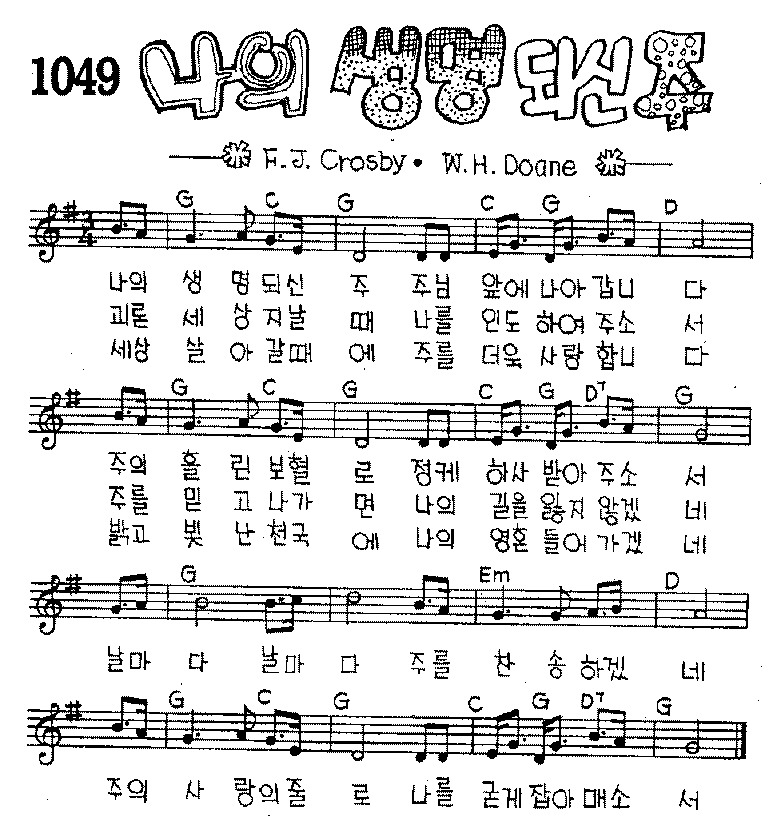 1049 나의 생명 되신 주
F.J. Crosby • W.H. Doane
G C G C G D
3/4
나의 생 명 되신 주 주님 앞에 나아 갑니 다
괴론 세 상 지날 때 나를 인도 하여 주소 서
세상 살 아 갈때 에 주를 더욱 사랑 합니 다
G C G C G D7 G
주의 흘 린 보혈 로 정케 하사 받아 주소 서
주를 믿 고 나가 면 나의 길을 잃지 않겠 네
밝고 빛 난 천국 에 나의 영혼 들어 가겠 네
G Em D
날마 다 날마 다 주를 찬 송 하겠 네
G C G C G D7 G
주의 사 랑의 줄 로 나를 굳게 잡아 매소 서